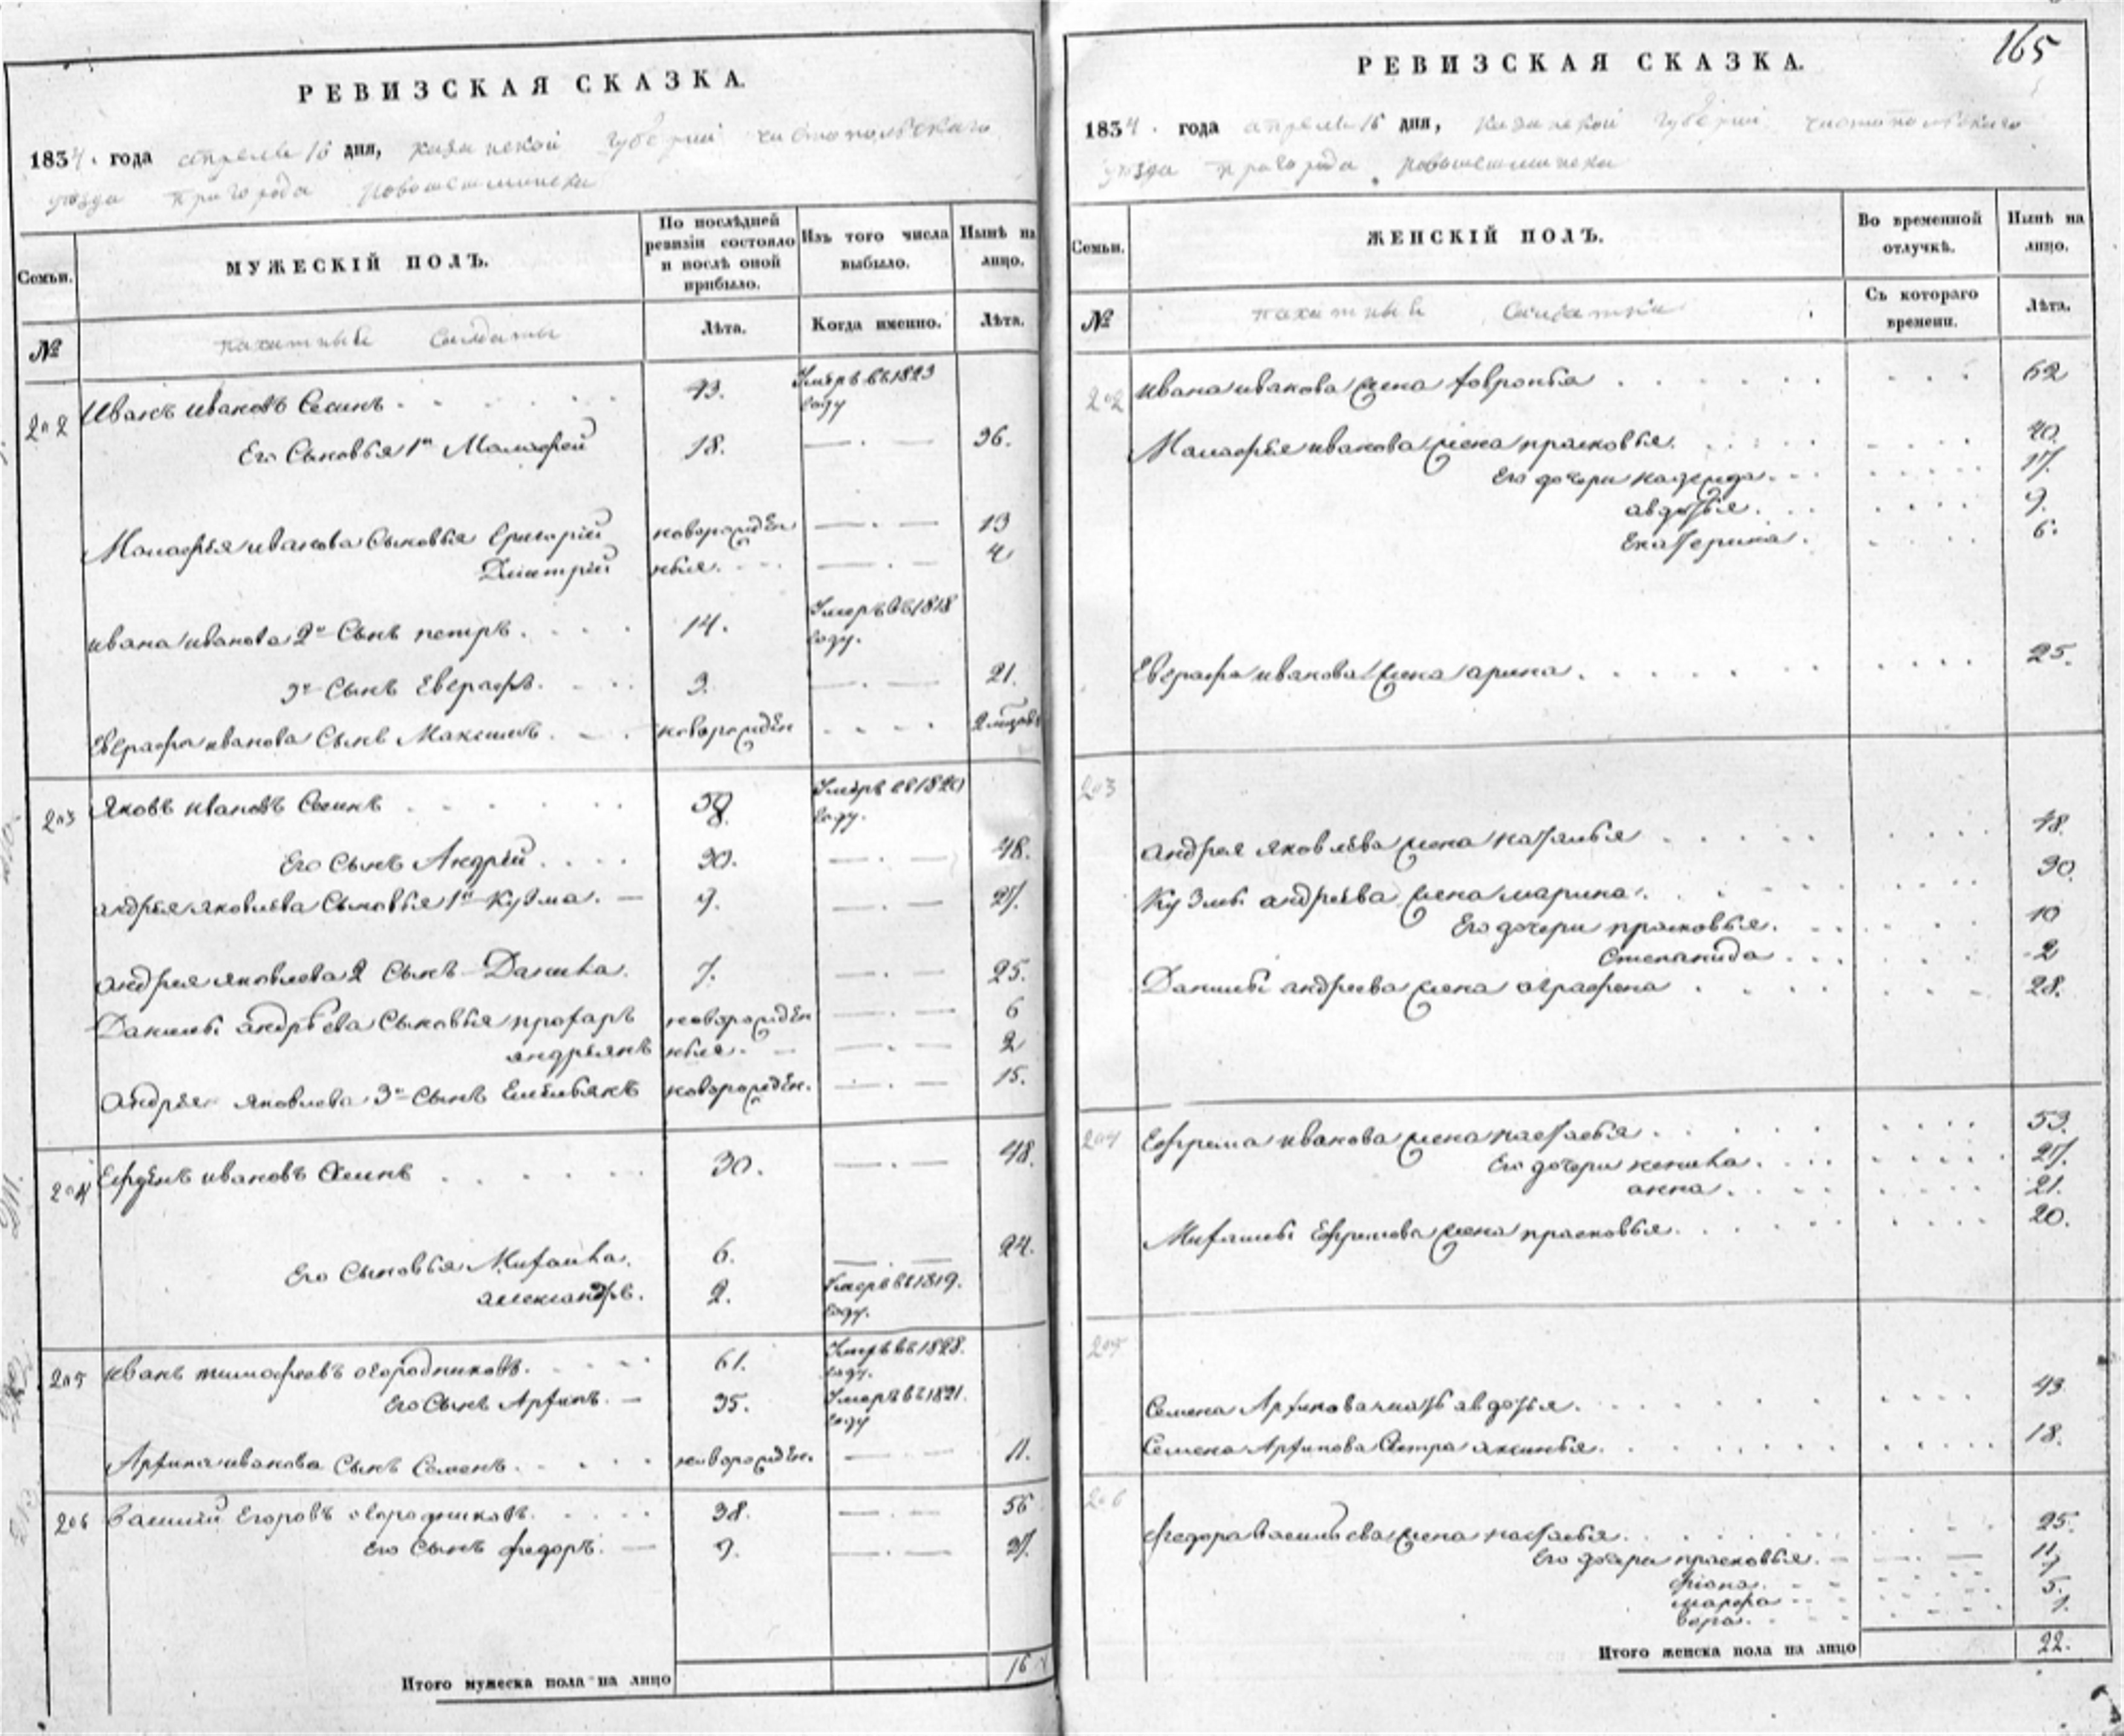 РЕВИЗСКАЯ СКАЗКА.
1834. года апреля 16 дня, казанской губернии чистопольскаго
уезда пригорода новошешминска
Семьи.
МУЖЕСКІЙ ПОЛЪ.
По послѣдней ревизіи состояло и послѣ оной прибыло.
Изъ того числа выбыло.
Нынѣ на лицо.
№
пахатныые солдаты
Лѣта.
Когда именно.
Лѣта.
202 Иванъ ивановъ Сесинъ 43. Умеръ въ 1823 году
Его Сыновья 1й Малафей 18. 36.
Малафея иванова Сыновья Григорий новорожден 13
Дмитрий ныя. 4
ивана иванова 2й Сынъ петръ. 14. Умеръ въ 1818 году.
3й Сынъ Евграфъ. 3. 21.
Евграфа иванова Сынъ Максимъ. новорожден 2
203 Яковъ ивановъ Сесинъ Умеръ въ 1820 году.
Его Сынъ Андрей 30. 48.
андрея яковлева Сыновья 1й Кузма. 9. 27.
андрея яковлева 2 Сынъ Данила. 7. 25.
Данилы андреева Сыновья прохаръ новорожден 6
андреянъ ныя. 2
андрея яковлева 3й Сынъ Емельянъ новорожден. 15.
204 ивановъ 30. 48.
Его Сыновья Михаила. 6. 24.
александръ. 2. Умеръ въ 1819. году.
205 иванъ тимофеевъ огородниковъ. 61. Умеръ въ 1828. году.
Его Сынъ Архипъ. 35. Умеръ въ 1821. году
Архипа иванова Сынъ Семенъ. новорожден. 11.
206 Василий Егоровъ огородниковъ. 38. 56
Его Сынъ федоръ. 9. 27.
Итого мужеска пола на лицо 16
165
РЕВИЗСКАЯ СКАЗКА.
1834. года апреля 16 дня, казанской губернии чистопольскаго
уезда пригорода новошешминска
Семьи.
ЖЕНСКІЙ ПОЛЪ.
Во временной отлучкѣ.
Нынѣ на лицо.
№
пахатныые солдатки
Съ котораго времени.
Лѣта.
202 ивана иванова жена 62
Малафея иванова жена прасковья. 40.
Его дочери надежда. 17.
авдотья. 9.
Екатерина. 6.
Евграфа иванова жена арина. 25.
203
андрея яковлева жена наталья 48.
Кузмы андреева жена марина. 30.
Его дочери прасковья. 10
Степанида 2
Данилы андреева жена аграфена 28.
204 Ефрема иванова жена настасья. 53.
Его дочери 27.
анна. 21.
Михаилы Ефремова жена прасковья. 20.
205
Семена Архипова мать авдотья. 43
Семена Архипова Сестра аксинья. 18.
206
федора васильева жена настасья. 25.
Его дочери прасковья. 11
7
марфа 5.
вера. 1.
Итого женска пола на лицо 22.